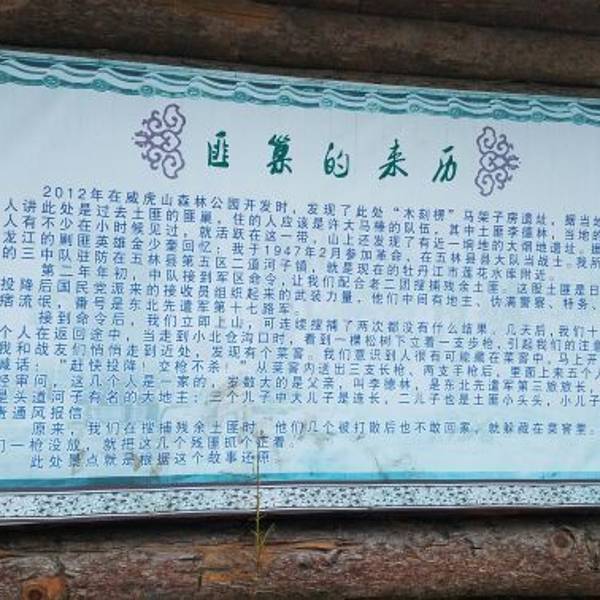 匪巢的来历
2012年在威虎山森林公园开发时，发现了此处“木刻楞”马架子房遗址，据当
人讲此处是过去土匪的匪巢。住的人应该是许大马棒的队伍，其中土匪李德林，当地的
人有不少在小时候见过，就活跃在这一带，山上还发现了有近一垧地的大烟地遗址。
龙江的剿匪英雄金少銮回忆：我于1947年2月参加革命，在五林县县大队当战士。我所
的三中队驻防在五林县第五区二道河子镇，就是现在的牡丹江市莲花水库附近。
第二年年初，中队接到军区命令，让我们配合老二团搜捕残余土匪。这股土匪是日
投降后国民党派来的接收员组织起来的武装力量，他们中间有地主、伪满警察、特务、
痞流氓，番号是东北先遣军第十七路军。
接到命令后，我们立即上山，可连续搜捕了两次都没有什么结果。几天后，我们十
个人在返回途中，当走到小北仓沟口时，看到一棵松树下立着一支步枪，引起我们的注意
我和战友们悄悄走到近处，发现有个菜窖。我们意识到人很有可能藏在菜窖中，马上开
喊话：“赶快投降！交枪不杀！”从菜窖内送出三支长枪，两支手枪后，里面上来五个人
经审问，这几个人是一家的，岁数大的是父亲，叫李德林，是东北先遣军第三旅旅长，
是头道河子有名的大地主；三个儿子中大儿子是连长，二儿子也是土匪小头头，小儿子
责通风报信
原来，我们在搜捕残余土匪时，他们几个被打散后也不敢回家，就躲藏在菜窖里。
们一枪没放，就把这几个残匪抓个正着。
此处景点就是根据这个故事还原